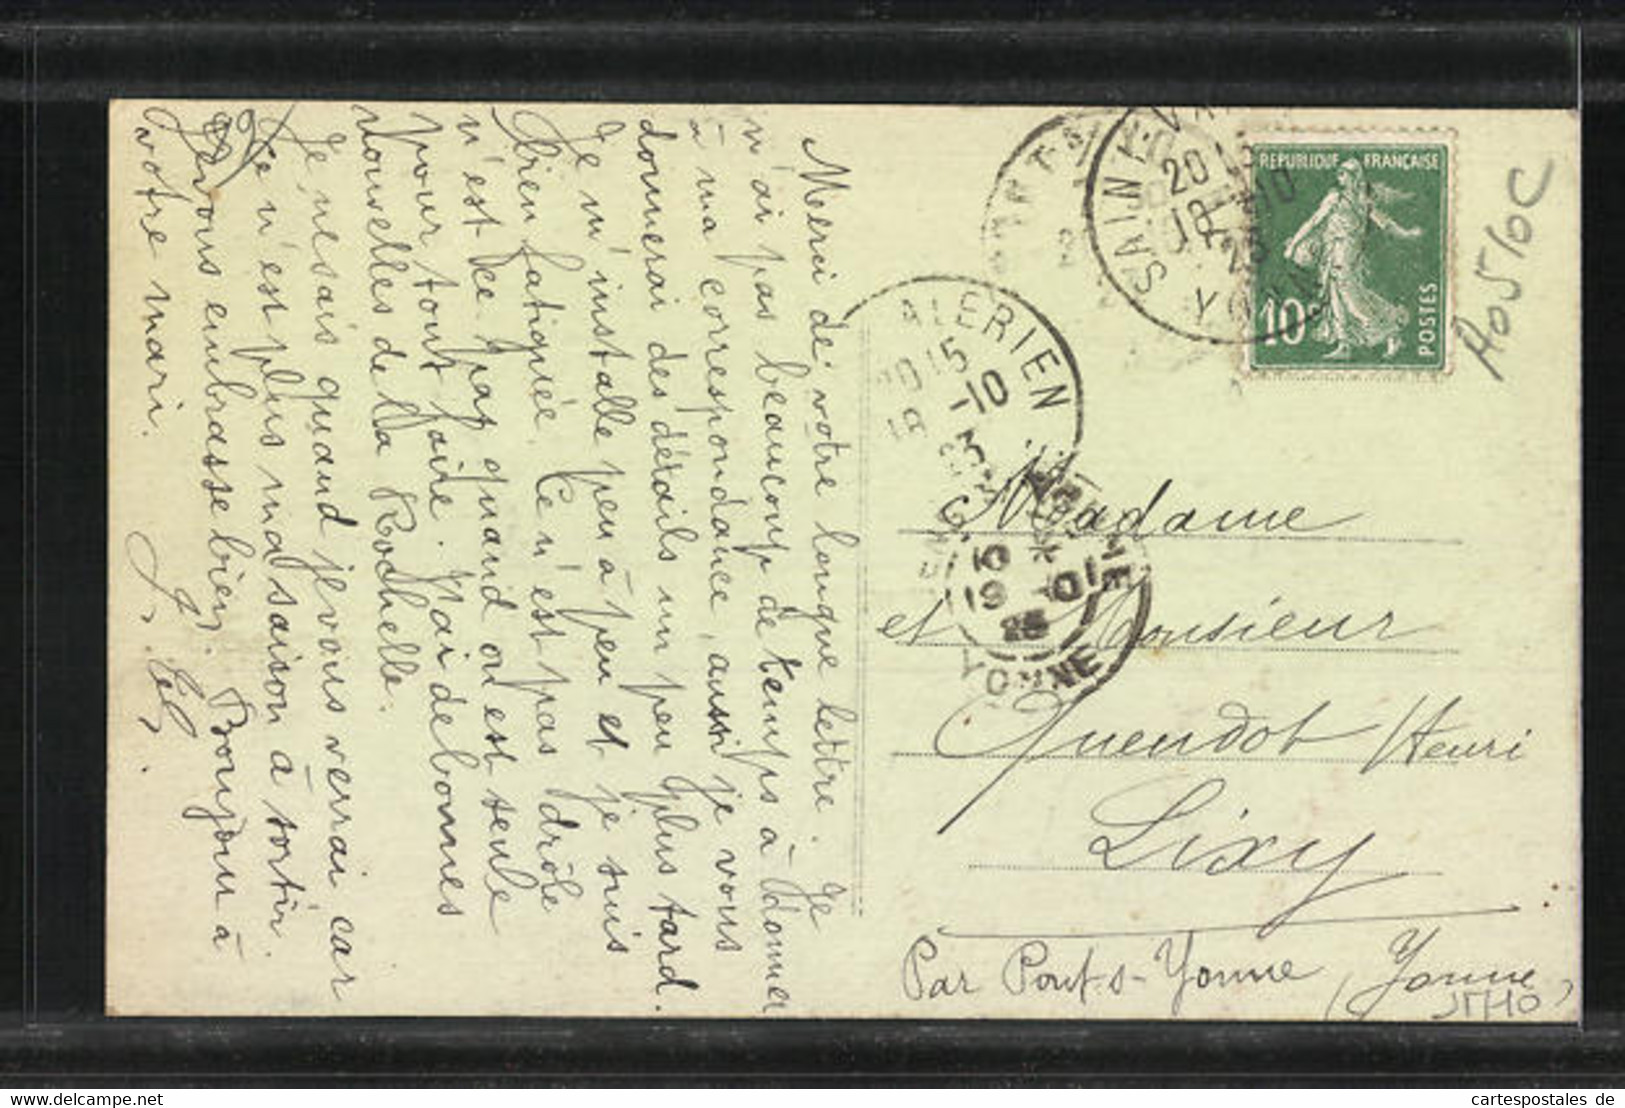 Merci de votre longue lettre. Je
n'ai pas beaucoup de temps à donner
à ma correspondance, aussi je vous
donnerai des détails un peu plus tard.
Je m'installe peu à peu et je suis
bien fatiguée. Ce n'est pas drôle
n'est ce pas quand on est seule
pour tout faire. J'ai de bonnes
nouvelles de La Rochelle.
Je ne sais quand je vous verrai car
ce n'est plus ma saison à sortir.
Je vous embrasse bien. Bonjour à
votre mari.
SAINT
VA
20 15
18 -10
23
YONNE
REPUBLIQUE FRANÇAISE
10c
POSTES
A0510C
ALERIEN
20 15
18 -10
23
10 *
19 -10
23
YONNE
Madame
et Monsieur
Guendot Henri
Lixy
Par Pont-s-Yonne (Yonne)
www.oldthing.net
cartespostales de